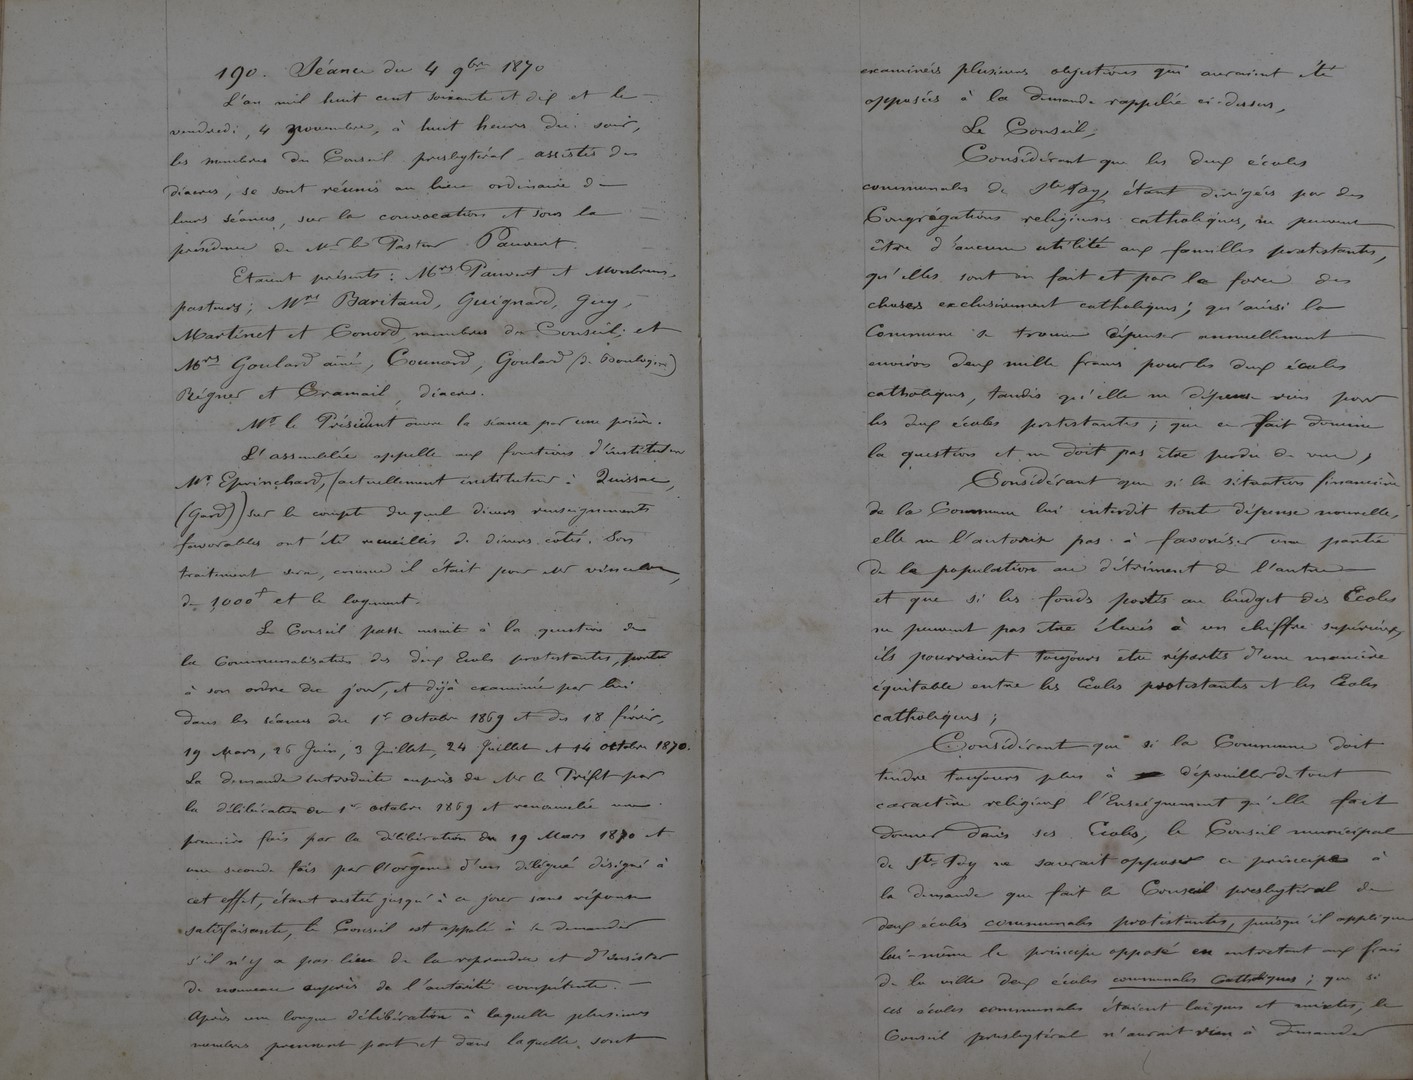 190. Séance du 4 9bre 1870
L'an mil huit cent soixante et dix et le
vendredi, 4 novembre, à huit heures du soir,
les membres du Conseil presbytéral assistés des
diacres, se sont réunis au lieu ordinaire de
leurs séances, sur la convocation et sous la
présidence de Mr le Pasteur Pauvert.
Etaient présents: Mrs Pauvert et
pasteurs; Mrs Baritaud, Guignard, Guy,
Martinet et Conord, membres du Conseil; et
Mrs Goulard aîné, Counord, Goulard (de Boulogne)
Régner et Gramail, diacres.
Mr le Président ouvre la séance par une prière.
L'assemblée appelle aux fonctions d'instituteur
Mr Eprinchard, (actuellement instituteur à Quissac,
(Gard)) sur le compte duquel divers renseignements
favorables ont été recueillis de divers cotés. Son
traitement sera, comme il était pour Mr
de 1000f et le logement.
Le Conseil passe ensuite à la question de
la Communalisation des deux Ecoles protestantes, portée
à son ordre du jour, et déjà examinée par lui
dans les séances du 1er octobre 1869 et des 18 février,
19 Mars, 26 Juin, 3 Juillet, 24 Juillet et 14 octobre 1870.
La demande introduite auprès de Mr le Préfet par
la délibération du 1er octobre 1869 et renouvelée une
première fois par la délibération du 19 Mars 1870 et
une seconde fois par l'organe d'un délégué désigné à
cet effet, étant restée jusqu'à ce jour sans réponse
satisfaisante, le Conseil est appelé à se demander
s'il n'y a pas lieu de la reprendre et d'insister
de nouveau auprès de l'autorité compétente.
Après une longue délibération à laquelle plusieurs
membres prennent part et dans laquelle sont
examinées plusieurs objections qui auraient été
opposées à la demande rappelée ci-dessus,
Le Conseil,
Considérant que les deux écoles
communales de Ste Foy, étant dirigées par des
Congrégations religieuses catholiques, ne peuvent
être d'aucune utilité aux familles protestantes,
qu'elles sont en fait et par la force des
choses exclusivement catholiques; qu'ainsi la
Commune se trouve dépenser annuellement
environ deux mille francs pour les deux écoles
catholiques, tandis qu'elle ne dépense rien pour
les deux écoles protestantes; que ce fait domine
la question et ne doit pas être perdu de vue,
Considérant que si la situation financière
de la Commune lui interdit toute dépense nouvelle,
elle ne l'autorise pas à favoriser une partie
de la population au détriment de l'autre
et que si les fonds portés au budget des Ecoles
ne peuvent pas être élevés à un chiffre supérieur,
ils pourraient toujours être répartis d'une manière
équitable entre les Ecoles protestantes et les Ecoles
catholiques;
Considérant que si la Commune doit
tendre toujours plus à dépouiller de tout
caractère religieux l'Enseignement qu'elle fait
donner dans ses Ecoles, le Conseil municipal
de Ste Foy ne saurait opposer ce principe à
la demande que fait le Conseil presbytéral de
deux écoles communales protestantes, puisqu'il applique
lui-même le principe opposé en entretenant aux frais
de la ville deux écoles communales catholiques; que si
ces écoles communales étaient laïques et mixtes, le
Conseil presbytéral n'aurait rien à demander